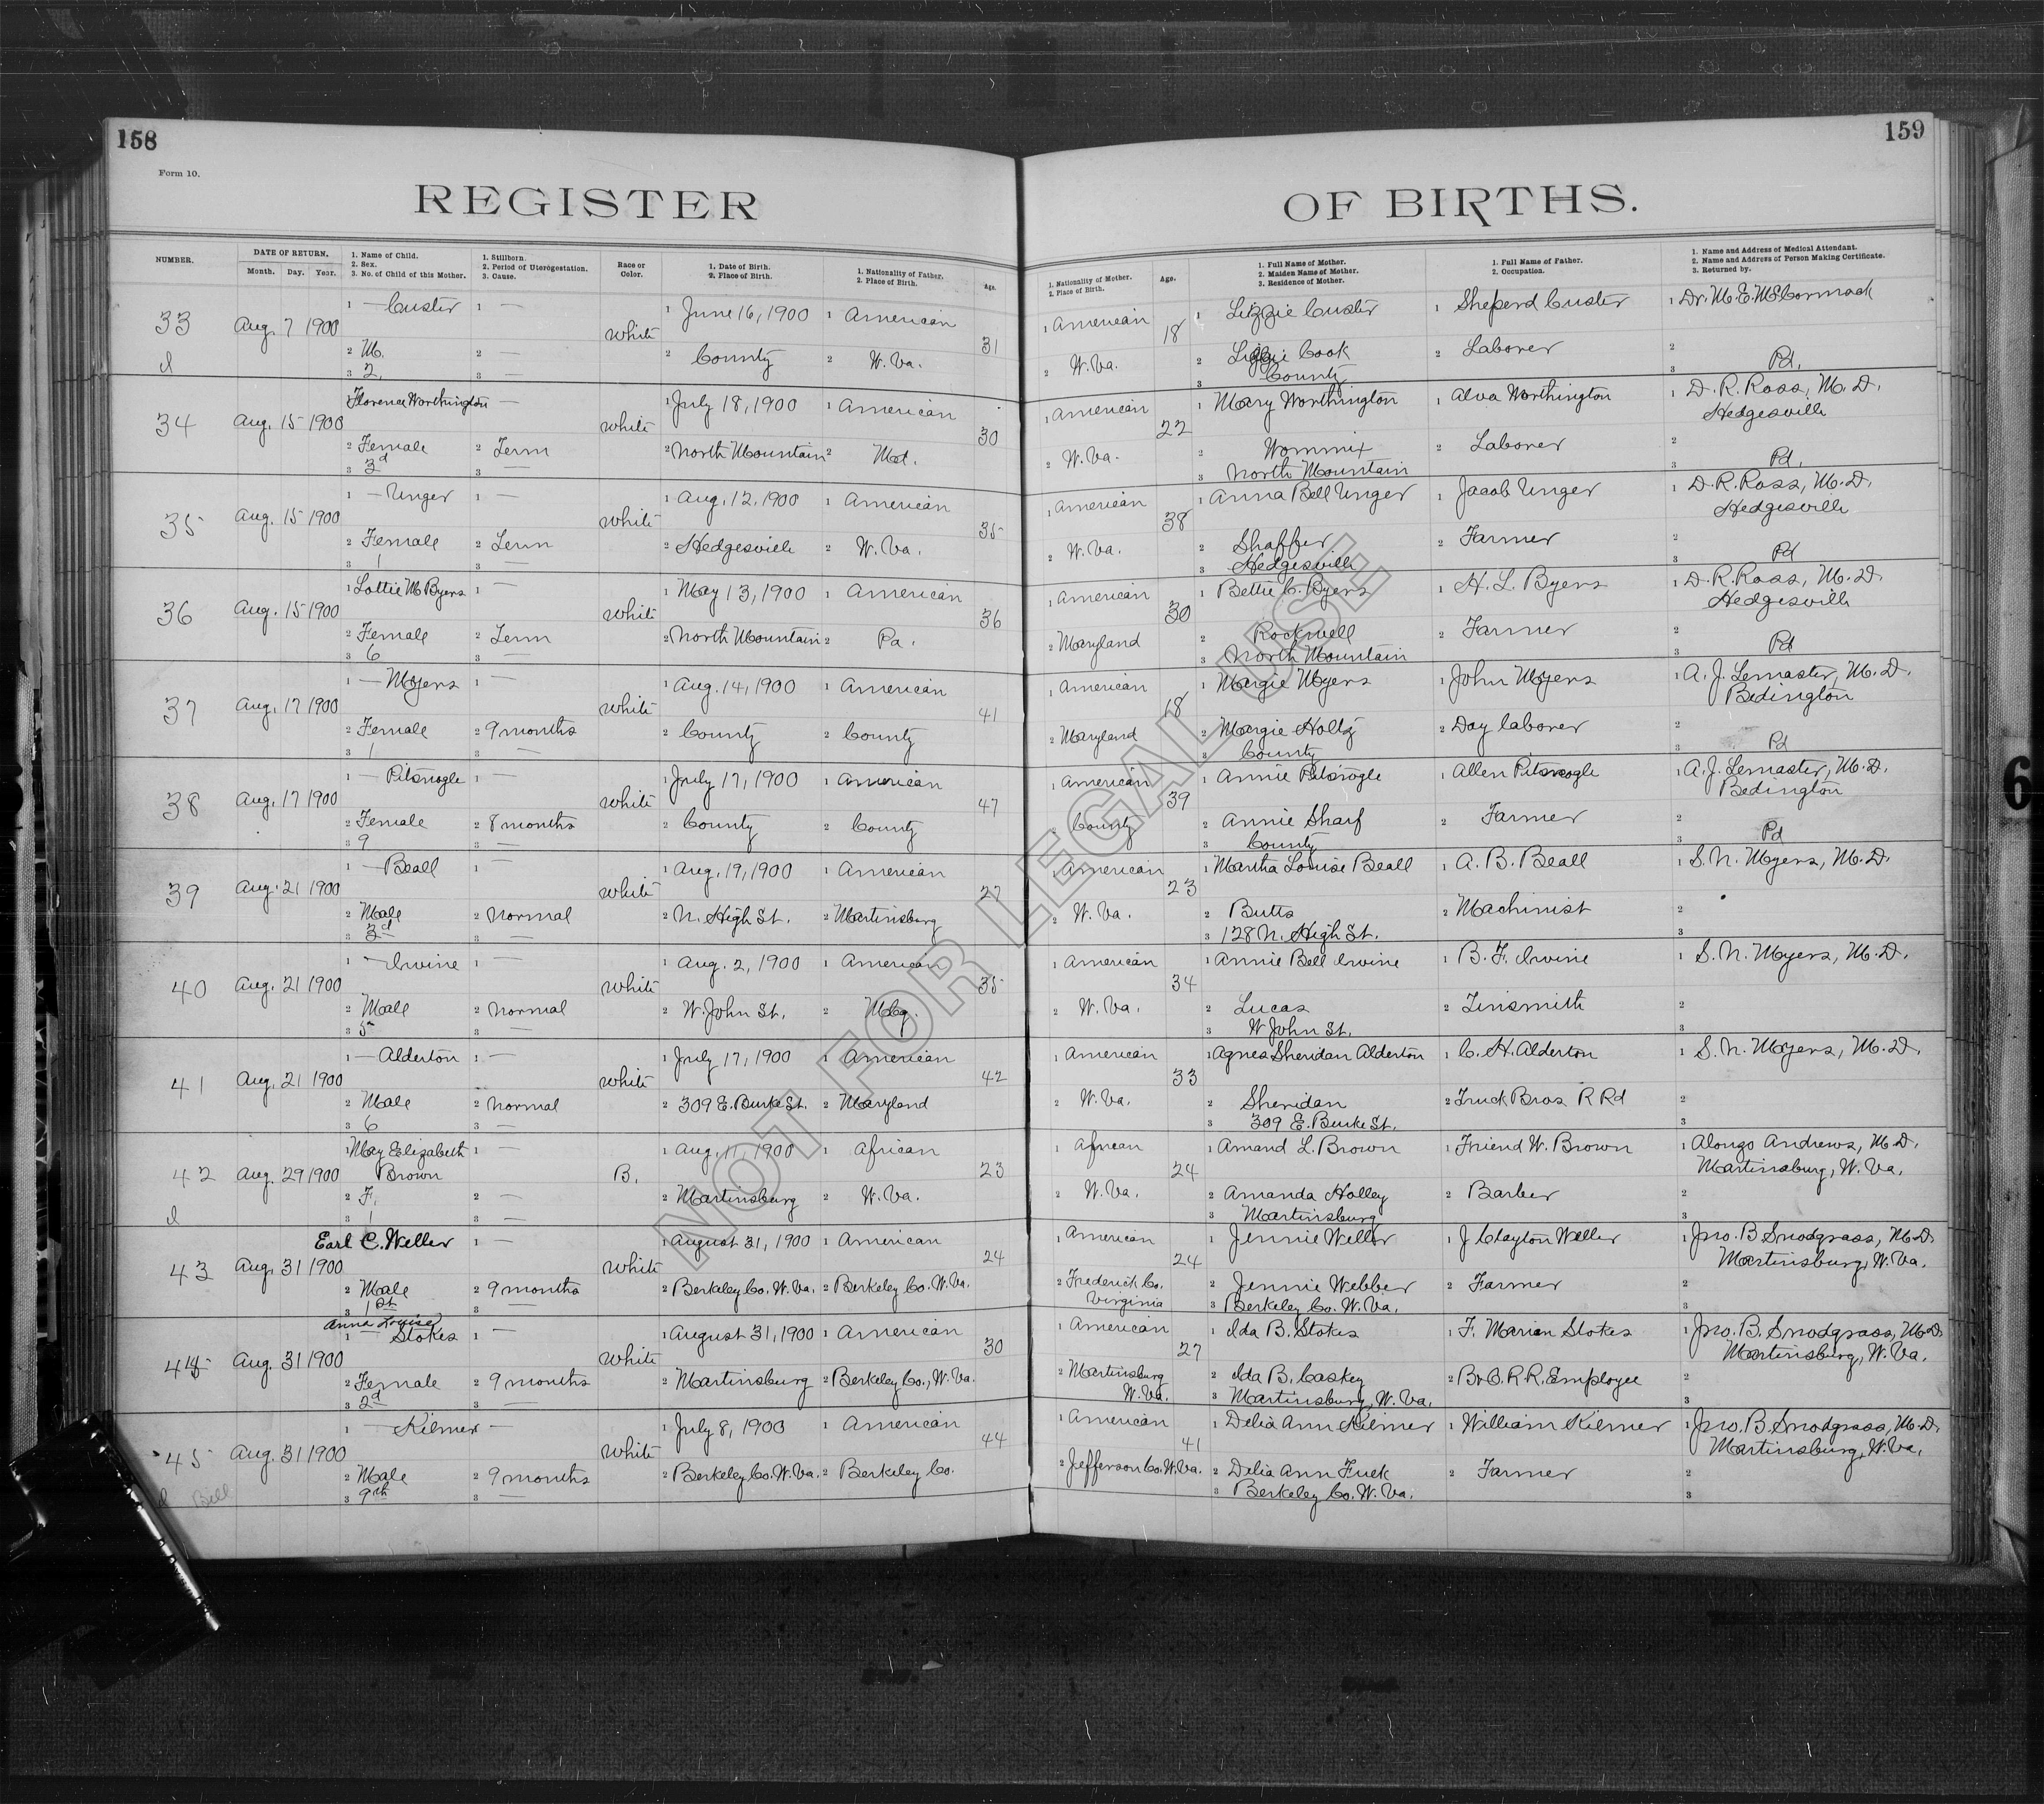 158
Form 10.
REGISTER
NUMBER.
DATE OF RETURN.
Month. Day. Year.
1. Name of Child.
2. Sex.
3. No. of Child of this Mother.
1. Stillborn.
2. Period of Uterogestation.
3. Cause.
Race or
Color.
1. Date of Birth.
2. Place of Birth.
1. Nationality of Father.
2. Place of Birth.
Age.
33 Aug. 7 1900 1 — Custer 1 — White 1 June 16, 1900 1 American 31
2 M. 2 — 2 County 2 W. Va.
3 2. 3 —
34 Aug. 15 1900 Florence Worthington — White 1 July 18, 1900 1 American 30
2 Female 2 Term 2 North Mountain 2 Md.
3 3d 3 —
35 Aug. 15 1900 1 — Unger 1 — White 1 Aug. 12, 1900 1 American 35
2 Female 2 Term 2 Hedgesville 2 W. Va.
3 1 3 —
36 Aug. 15 1900 1 Lottie M Byers 1 — White 1 May 13, 1900 1 American 36
2 Female 2 Term 2 North Mountain 2 Pa.
3 6 3 —
37 Aug. 17 1900 1 — Myers 1 — White 1 Aug. 14, 1900 1 American 41
2 Female 2 9 months 2 County 2 County
3 1 3 —
38 Aug. 17 1900 1 — Pitsnogle 1 — White 1 July 17, 1900 1 American 47
2 Female 2 8 months 2 County 2 County
3 9 3 —
39 Aug. 21 1900 1 — Beall 1 — White 1 Aug. 19, 1900 1 American 27
2 Male 2 Normal 2 N. High St. 2 Martinsburg
3 3d 3 —
40 Aug. 21 1900 1 — Irvine 1 — White 1 Aug. 2, 1900 1 American 35
2 Male 2 Normal 2 W. John St. 2
3 5 3 —
41 Aug. 21 1900 1 — Alderton 1 — White 1 July 17, 1900 1 American 42
2 Male 2 Normal 2 309 E. Burke St. 2 Maryland
3 6 3 —
42 Aug. 29 1900 1 May Elizabeth 1 — B. 1 Aug. 11, 1900 1 African 23
Brown
2 F. 2 — 2 Martinsburg 2 W. Va.
3 1 3 —
43 Aug. 31 1900 Earl C. Weller 1 — White 1 August 31, 1900 1 American 24
2 Male 2 9 months 2 Berkeley Co. W. Va. 2 Berkeley Co. W. Va.
3 1st 3 —
44 Aug. 31 1900 Anna Louise White 1 August 31, 1900 1 American 30
1 — Stokes 1 —
2 Female 2 9 months 2 Martinsburg 2 Berkeley Co., W. Va.
3 2d 3 —
45 Aug. 31 1900 1 — Kilmer — White 1 July 8, 1900 1 American 44
2 Male 2 9 months 2 Berkeley Co. W. Va. 2 Berkeley Co.
Bell 3 9th 3 —
159
OF BIRTHS.
1. Nationality of Mother.
2. Place of Birth.
Age.
1. Full Name of Mother.
2. Maiden Name of Mother.
3. Residence of Mother.
1. Full Name of Father.
2. Occupation.
1. Name and Address of Medical Attendant.
2. Name and Address of Person Making Certificate.
3. Returned by.
1 American 18 1 Lizzie Custer 1 Sheperd Custer 1 Dr. M. E. McCormack
2 W. Va. 2 Lizzie Cook 2 Laborer 2
3 County 3 Pd.
1 American 22 1 Mary Worthington 1 Alva Worthington 1 D. R. Ross, M. D.
Hedgesville
2 W. Va. 2 Wommix 2 Laborer 2
3 North Mountain 3 Pd.
1 American 38 1 Anna Bell Unger 1 Jacob Unger 1 D. R. Ross, M. D.
Hedgesville
2 W. Va. 2 Shaffer 2 Farmer 2
3 Hedgesville 3 Pd
1 American 30 1 Bettie C. Byers 1 H. L. Byers 1 D. R. Ross, M. D.
Hedgesville
2 Maryland 2 Rockwell 2 Farmer 2
3 North Mountain 3 Pd
1 American 18 1 Margie Myers 1 John Myers 1 A. J. Lemaster, M. D.
Bedington
2 Maryland 2 Margie Holtz 2 Day laborer 2
3 County 3 Pd
1 American 39 1 Annie Pitsnogle 1 Allen Pitsnogle 1 A. J. Lemaster, M. D.
Bedington
2 County 2 Annie Sharf 2 Farmer 2
3 County 3 Pd
1 American 23 1 Martha Louise Beall 1 A. B. Beall 1 S. N. Myers, M. D.
2 W. Va. 2 Butts 2 Machinist 2
3 128 N. High St. 3
1 American 34 1 Annie Bell Irvine 1 B. F. Irvine 1 S. N. Myers, M. D.
2 W. Va. 2 Lucas 2 Tinsmith 2
3 W John St. 3
1 American 33 1 Agnes Sheridan Alderton 1 C. H. Alderton 1 S. N. Myers, M. D.
2 W. Va. 2 Sheridan 2 Truck Bros R Rd 2
3 309 E. Burke St. 3
1 African 24 1 Amand L. Brown 1 Friend W. Brown 1 Alonzo Andrews, M. D.
Martinsburg, W. Va.
2 W. Va. 2 Amanda Holley 2 Barber 2
3 Martinsburg 3
1 American 24 1 Jennie Weller 1 J Clayton Weller 1 Jno. B Snodgrass, M. D.
Martinsburg, W. Va.
2 Frederick Co. 2 Jennie Webber 2 Farmer 2
Virginia 3 Berkeley Co. W. Va. 3
1 American 27 1 Ida B. Stokes 1 F. Marion Stokes 1 Jno. B. Snodgrass, M. D.
Martinsburg, W. Va.
2 Martinsburg 2 Ida B. Caskey 2 B & O. R R. Employee 2
W. Va. 3 Martinsburg, W. Va. 3
1 American 41 1 Delia Ann Kilmer 1 William Kilmer 1 Jno. B. Snodgrass, M. D.
Martinsburg, W. Va.
2 Jefferson Co. W. Va. 2 Delia Ann Fuck 2 Farmer 2
3 Berkeley Co. W. Va. 3
NOT FOR LEGAL USE
6